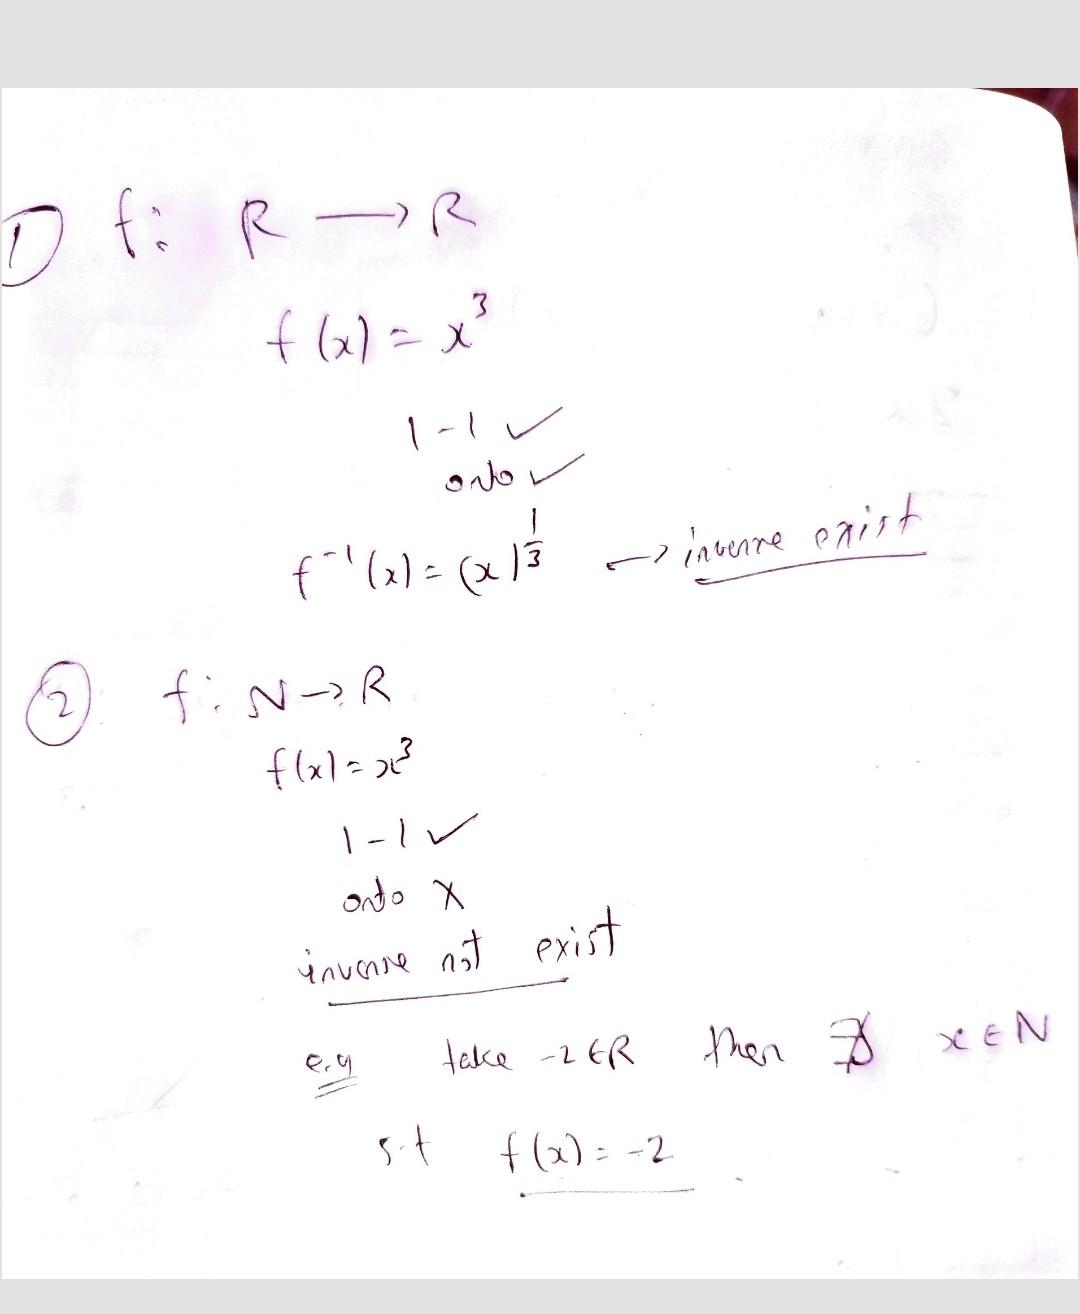 ① f: R → R
f(x) = x³
1-1 ✓
onto ✓
f⁻¹(x) = (x)^{1/3} → inverse exist
② f: N → R
f(x) = x³
1-1 ✓
onto X
inverse not exist
e.g take -2 ∈ R then ∄ x ∈ N
s.t f(x) = -2